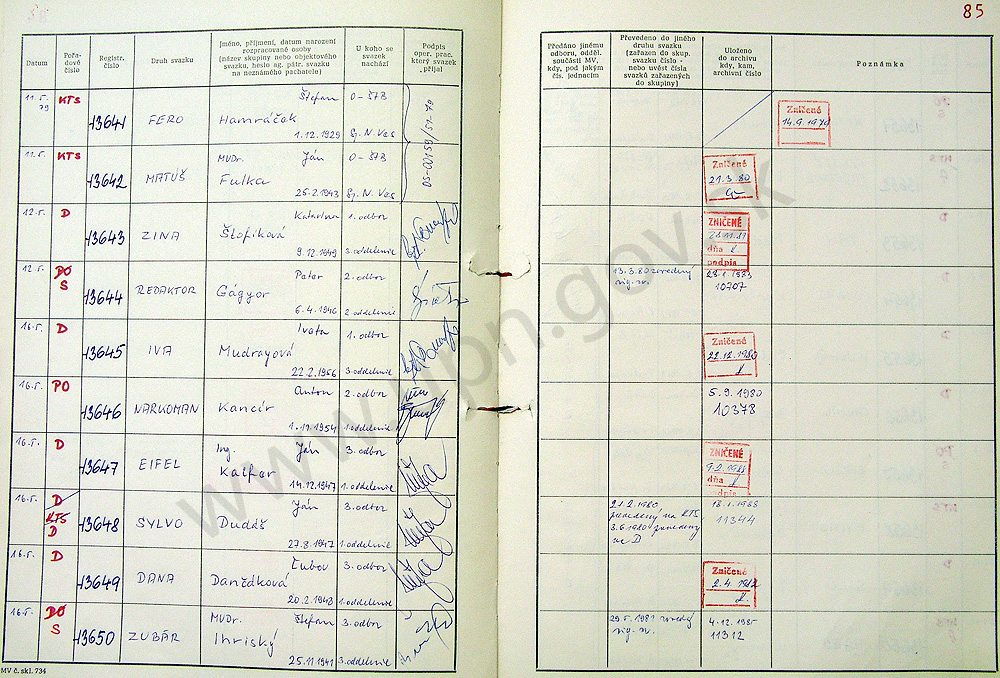 85
Datum
Pořa-
dové
číslo
Registr.
číslo
Druh svazku
Jméno, příjmení, datum narození
rozpracované osoby
(název skupiny nebo objektového
svazku, heslo ag. pátr. svazku
na neznámého pachatele)
U koho se
svazek
nachází
Podpis
oper. prac.
který svazek
přijal
Předáno jinému
odboru, odděl.
součásti MV,
kdy, pod jakým
čís. jednacím
Převedeno do jiného
druhu svazku
(zařazen do skup.
svazku číslo -
nebo uvést čísla
svazků zařazených
do skupiny)
Uloženo
do archivu
kdy, kam,
archivní číslo
Poznámka
11.5. 79 KTS 13641 FERO Štefan Hamráček 1.12.1929 O-ŠTB Sp. N. Ves
Zničené
14.9.1979
11.5. KTS 13642 MATÚŠ MVDr. Ján Fulka 25.2.1943 O-ŠTB Sp. N. Ves
Zničené
21.3.80
12.5. D 13643 ZINA Katarína Štofiková 9.12.1949 1. odbor 3. oddelenie
ZNIČENÉ
dňa
podpis
12.5. DO S 13644 REDAKTOR Peter Gágyor 6.4.1946 2. odbor 2 oddelenie
13.3.80 zvedený
28.1.1983
10707
16.5. D 13645 IVA Iveta Mudrayová 22.2.1956 1. odbor 3. oddelenie
Zničené
22.12.1980
16.5. PO 13646 NARKOMAN Anton Kancír 1.11.1954 2. odbor 1. oddelenie
5.9.1980
10378
16.5. D 13647 EIFEL Ing. Ján Kalfar 14.12.1947 3. odbor 1. oddelenie
ZNIČENÉ
dňa
podpis
16.5. D KTS D 13648 SYLVO Ján Dudáš 27.8.1947 3. odbor 1. oddelenie
21.2.1980
prevedený na KTS
3.6.1980 prevedený
na D
18.1.1988
11344
16.5. D 13649 DANA Ľubov Danědková 20.2.1948 3. odbor 1. oddelenie
Zničené
16.5. DO S 13650 ZUBÁR MVDr. Štefan Ihriský 25.11.1941 3. odbor 3. oddelenie
4.12.1985
11312
MV č. skl. 734
www.upn.gov.sk